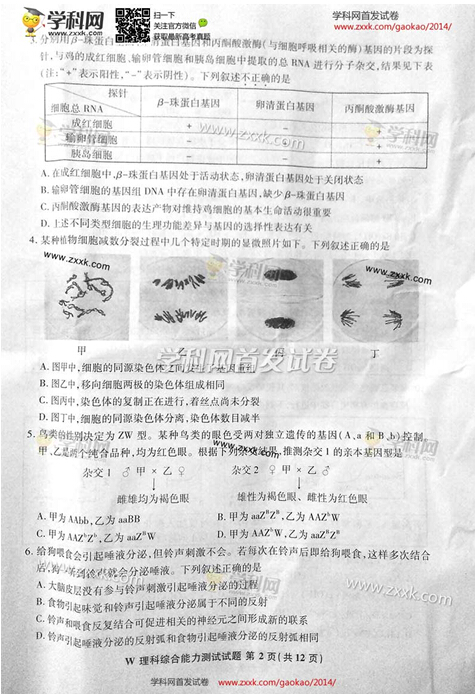 学科网
www.zxxk.com
扫一下
关注官方微信
获取最新高考真题
学科网首发试卷
www.zxxk.com/gaokao/2014/
3.分别用β-珠蛋白 蛋白基因和丙酮酸激酶(与细胞呼吸相关的酶)基因的片段为探
针,与鸡的成红细胞、输卵管细胞和胰岛细胞中提取的总 RNA 进行分子杂交,结果见下表
(注:“+”表示阳性,“-”表示阴性)。下列叙述不正确的是
探针
细胞总 RNA
β-珠蛋白基因
卵清蛋白基因
丙酮酸激酶基因
成红细胞 + -
输卵管细胞 - +
胰岛细胞 - - +
A.在成红细胞中,β-珠蛋白基因处于活动状态,卵清蛋白基因处于关闭状态
B.输卵管细胞的基因组 DNA 中存在卵清蛋白基因,缺少β-珠蛋白基因
C.丙酮酸激酶基因的表达产物对维持鸡细胞的基本生命活动很重要
D.上述不同类型细胞的生理功能差异与基因的选择性表达有关
4.某种植物细胞减数分裂过程中几个特定时期的显微照片如下。下列叙述正确的是
www.zxxk.com
学科网
甲 乙 丁
学科网首发试卷
A.图甲中,细胞的同源染色体之间发生了基因重组
B.图乙中,移向细胞两极的染色体组成相同
C.图丙中,染色体的复制正在进行,着丝点尚未分裂
D.图丁中,细胞的同源染色体分离,染色体数目减半
5.鸟类的性别决定为 ZW 型。某种鸟类的眼色受两对独立遗传的基因(A、a 和 B、b)控制。
甲、乙是两个纯合品种,均为红色眼。根据下列杂交结果,推测杂交 1 的亲本基因型是
杂交 1 ♂ 甲 × 乙 ♀ 杂交 2 ♀ 甲 × 乙 ♂
雌雄均为褐色眼 雄性为褐色眼、雌性为红色眼
A.甲为 AAbb,乙为 aaBB B.甲为 aaZᴮZᴮ,乙为 AAZᵇW
C.甲为 AAZᵇZᵇ,乙为 aaZᴮW D.甲为 AAZᵇZᵇ,乙为 aaZᴮW
6.给狗喂食会引起唾液分泌,但铃声刺激不会。若每次在铃声后即给狗喂食,这样多次结合
后,狗一听到铃声就会分泌唾液。下列叙述正确的是
A.大脑皮层没有参与铃声刺激引起唾液分泌的过程
B.食物引起味觉和铃声引起唾液分泌属于不同的反射
C.铃声和喂食反复结合可促进相关的神经元之间形成新的联系
D.铃声引起唾液分泌的反射弧和食物引起唾液分泌的反射弧相同
W 理科综合能力测试试题 第 2 页(共 12 页)
学科网首发试卷
www.zxxk.com/gaokao/2014/